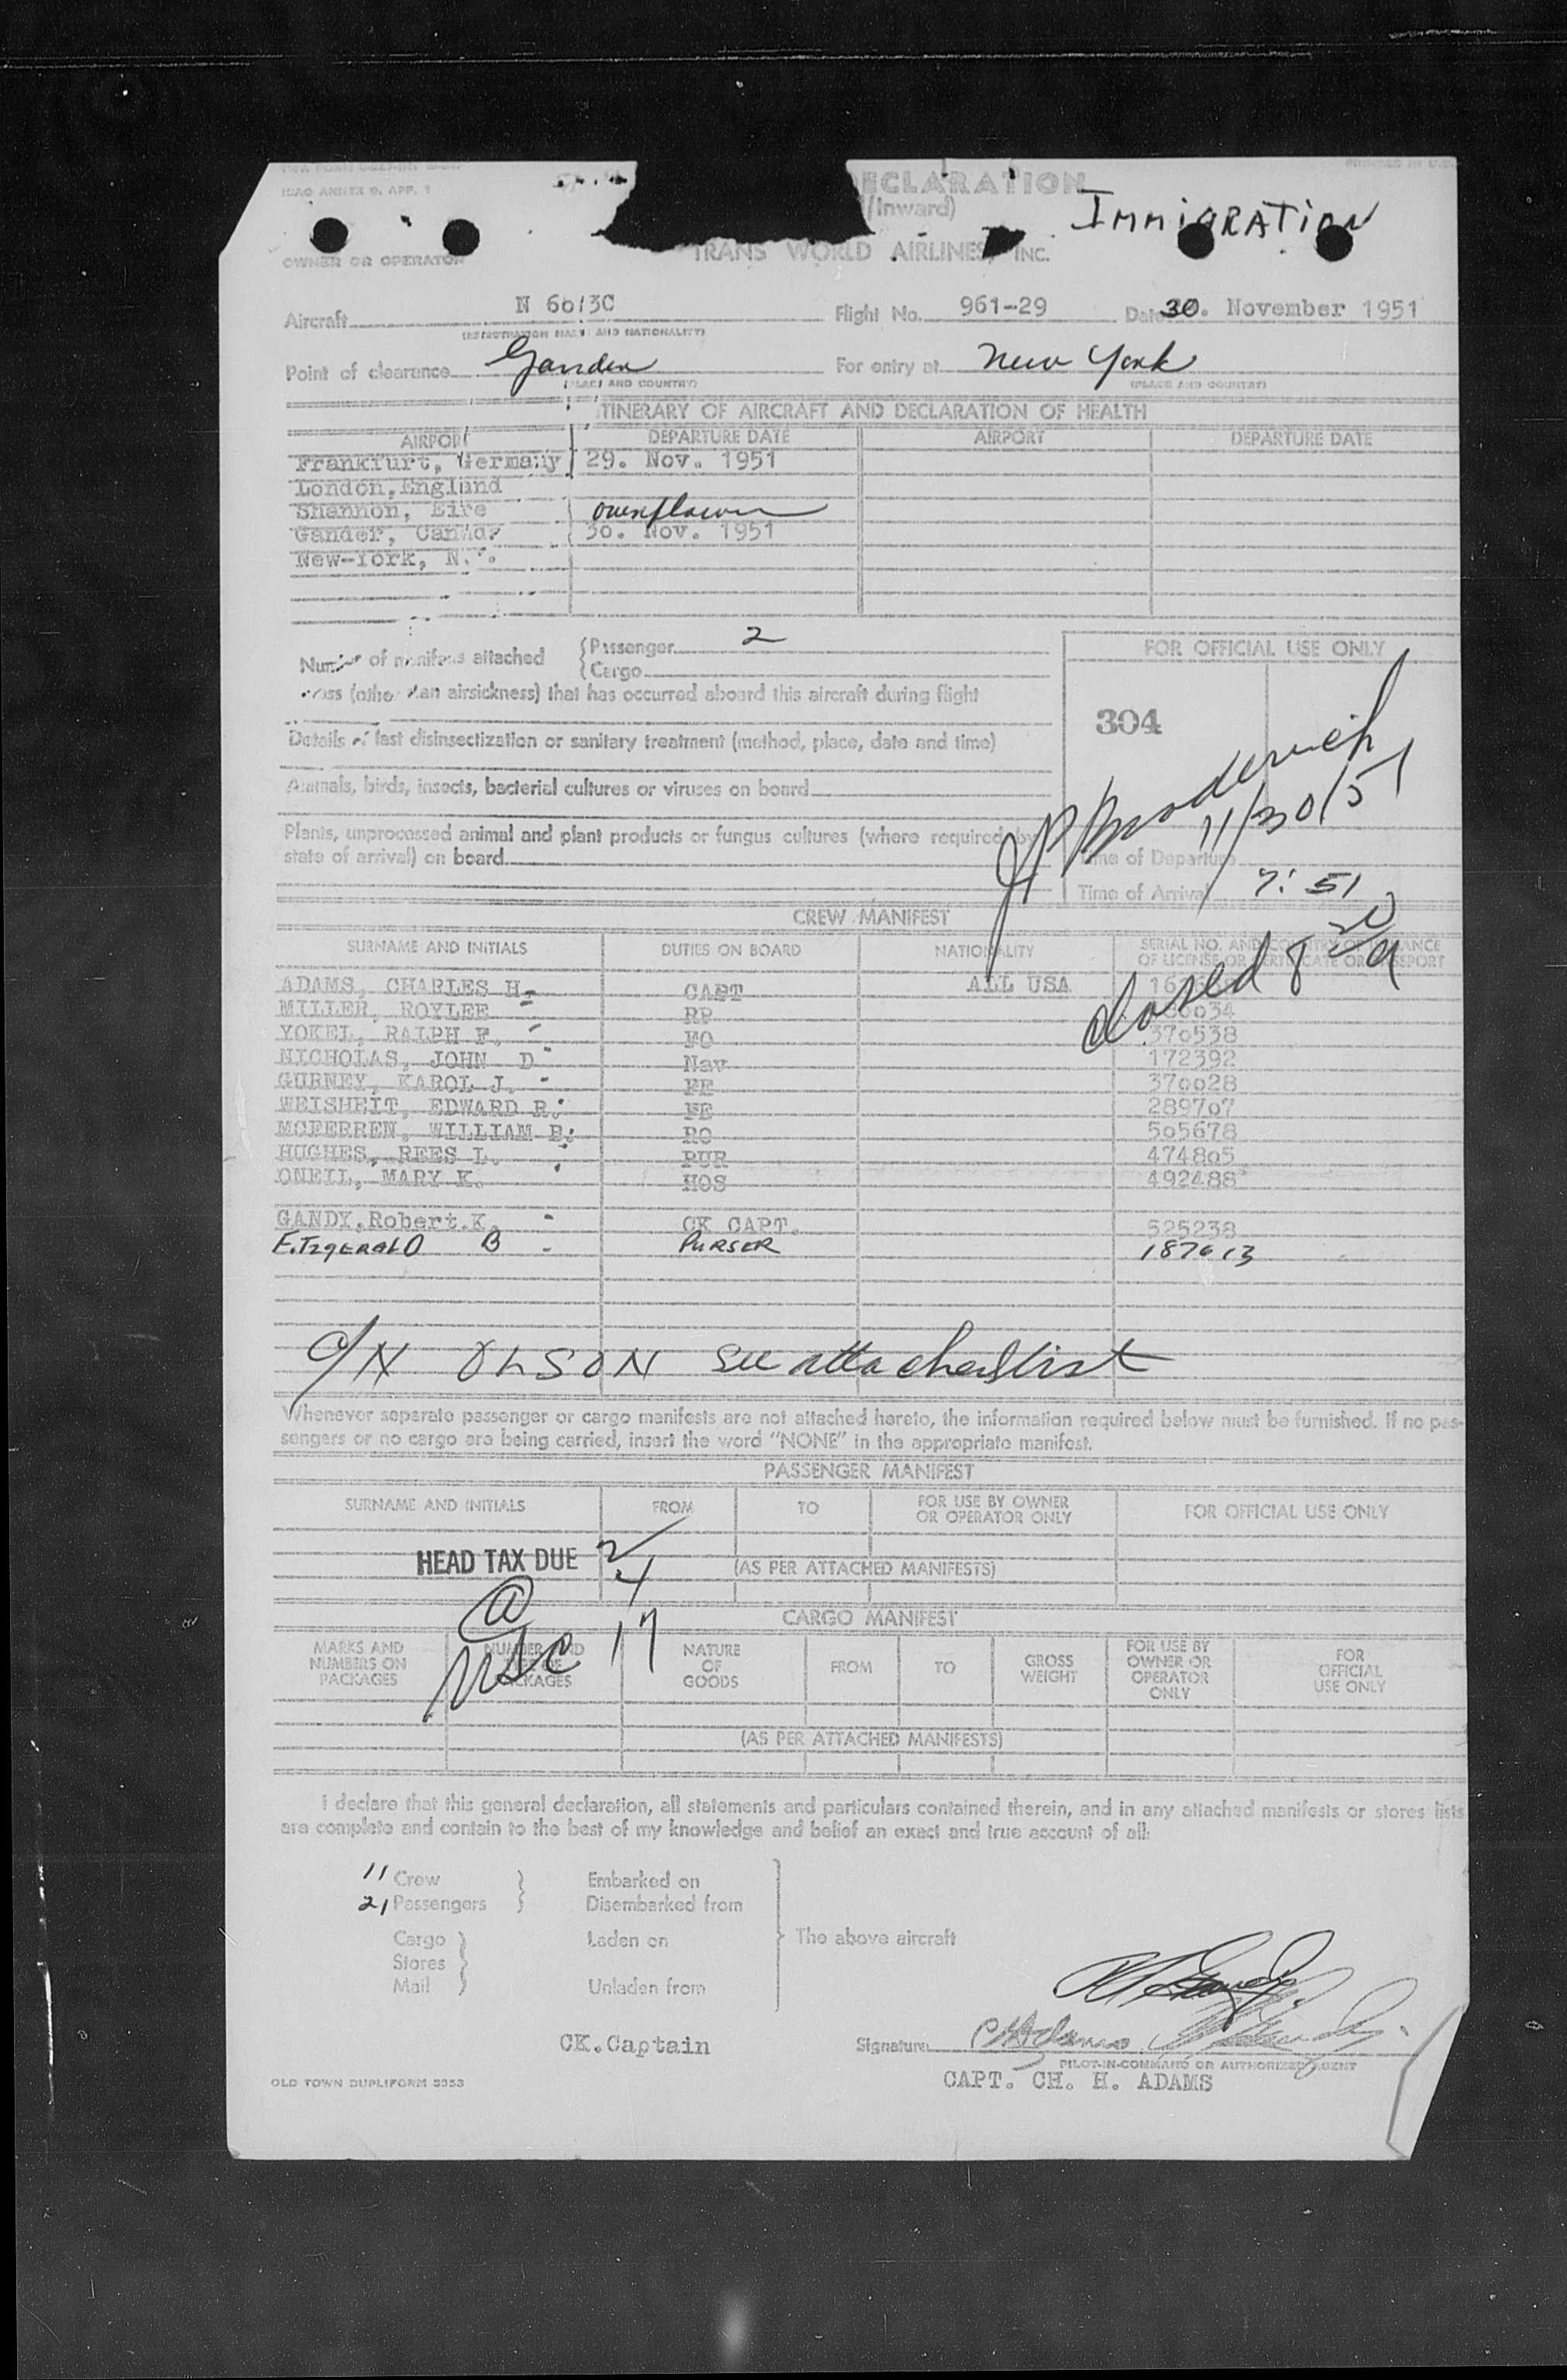 ICAO ANNEX 9, APP. 1
ECLARATION
(Inward)
IMMIGRATION
OWNER OR OPERATOR
TRANS WORLD AIRLINES, INC.
Aircraft Flight No. 961-29 Date 30. November 1951
(REGISTRATION MARKS AND NATIONALITY)
Point of clearance Gander For entry at New York
(PLACE AND COUNTRY) (PLACE AND COUNTRY)
ITINERARY OF AIRCRAFT AND DECLARATION OF HEALTH
AIRPORT DEPARTURE DATE AIRPORT DEPARTURE DATE
Frankfurt, Germany 29. Nov. 1951
London, England
Shannon, Eire overflown
Gander, Canada 30. Nov. 1951
New-York, N.Y.
Number of manifests attached {Passenger 2
{Cargo
FOR OFFICIAL USE ONLY
(other than airsickness) that has occurred aboard this aircraft during flight
304
Details of last disinsectization or sanitary treatment (method, place, date and time)
Animals, birds, insects, bacterial cultures or viruses on board
JP Broderick
11/30/51
Plants, unprocessed animal and plant products or fungus cultures (where required by
state of arrival) on board
Time of Departure
Time of Arrival 7:51
CREW MANIFEST
closed 8
SURNAME AND INITIALS DUTIES ON BOARD NATIONALITY SERIAL NO. AND COUNTRY OF ISSUANCE
OF LICENSE OR CERTIFICATE OR PASSPORT
ADAMS, CHARLES H. CAPT ALL USA
MILLER, ROYLEE RP
YOKEL, RALPH F. FO 370538
NICHOLAS, JOHN D Nav 172392
GURNEY, KAROL J. FE 370028
WEISHEIT, EDWARD R. FE 289707
MCFERREN, WILLIAM B. RO 505678
HUGHES, REES L. PUR 474805
ONEIL, MARY K. HOS 492488
GANDY, Robert.K. CK CAPT. 525238
FITZGERALD B PURSER 187613
OLSON See attached list
Whenever separate passenger or cargo manifests are not attached hereto, the information required below must be furnished. If no pas-
sengers or no cargo are being carried, insert the word "NONE" in the appropriate manifest.
PASSENGER MANIFEST
SURNAME AND INITIALS FROM TO FOR USE BY OWNER
OR OPERATOR ONLY FOR OFFICIAL USE ONLY
HEAD TAX DUE 2
4
(AS PER ATTACHED MANIFESTS)
@
USC 17
CARGO MANIFEST
MARKS AND
NUMBERS ON
PACKAGES NUMBER AND
TYPE OF
PACKAGES NATURE
OF
GOODS FROM TO GROSS
WEIGHT FOR USE BY
OWNER OR
OPERATOR
ONLY FOR
OFFICIAL
USE ONLY
(AS PER ATTACHED MANIFESTS)
I declare that this general declaration, all statements and particulars contained therein, and in any attached manifests or stores lists
are complete and contain to the best of my knowledge and belief an exact and true account of all:
11 Crew } Embarked on
21 Passengers } Disembarked from
Cargo } Laden on The above aircraft
Stores
Mail } Unladen from
CK.Captain Signature CHAdams
PILOT-IN-COMMAND OR AUTHORIZED AGENT
CAPT. CH. H. ADAMS
OLD TOWN DUPLIFORM 3353